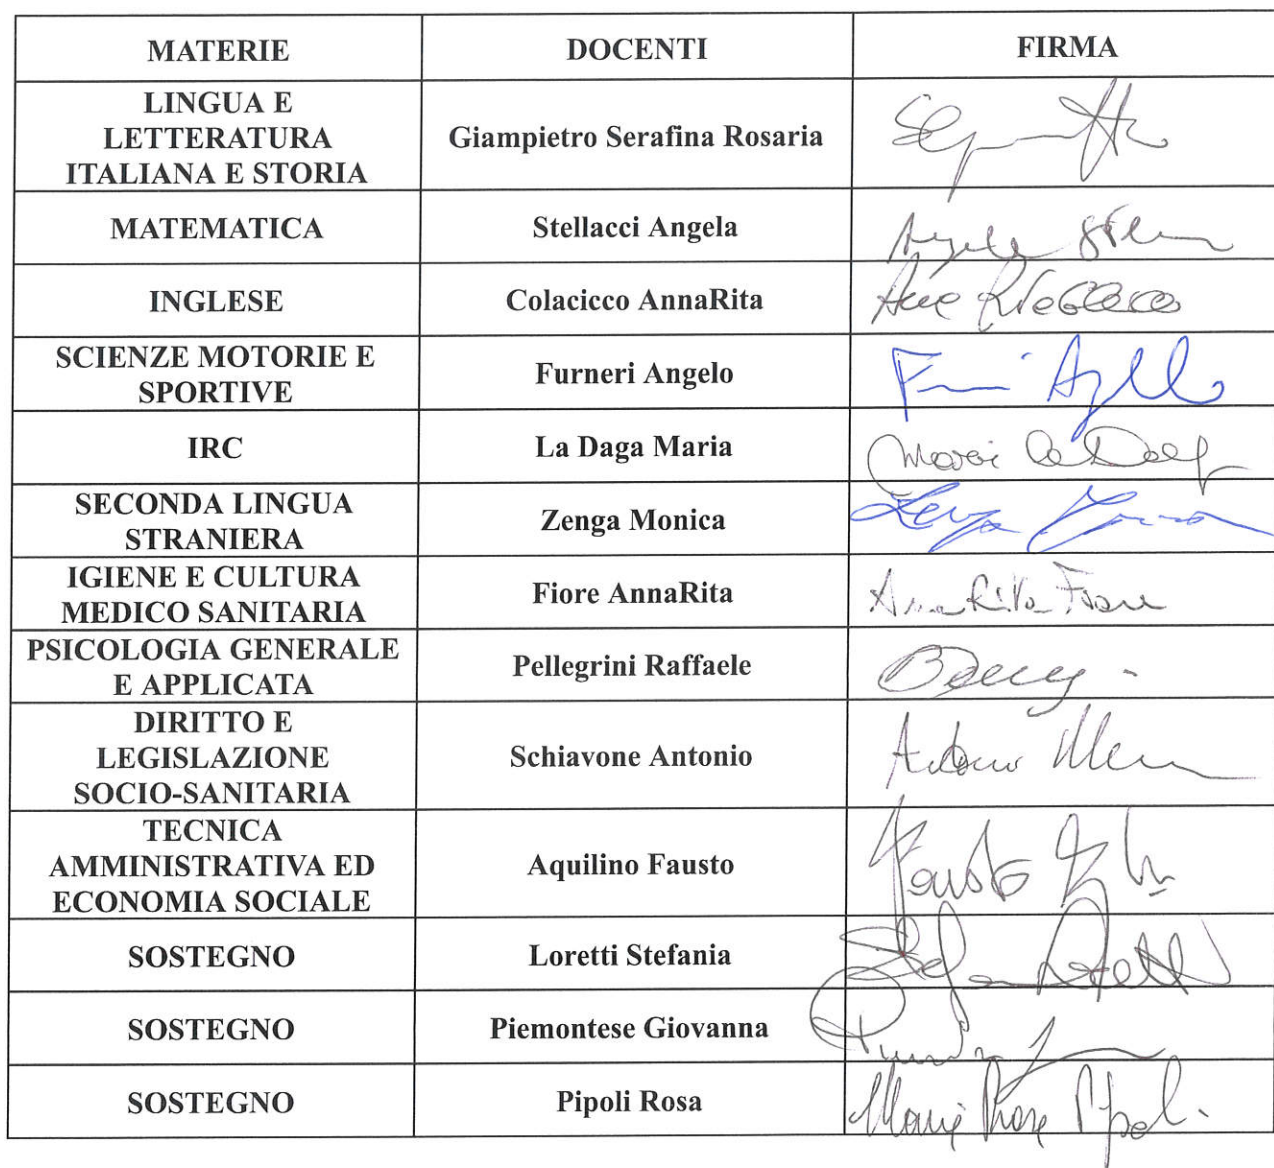 MATERIE DOCENTI FIRMA
LINGUA E
LETTERATURA
ITALIANA E STORIA
Giampietro Serafina Rosaria
MATEMATICA Stellacci Angela Angela
INGLESE Colacicco AnnaRita
SCIENZE MOTORIE E
SPORTIVE
Furneri Angelo
IRC La Daga Maria Maria La Daga
SECONDA LINGUA
STRANIERA
Zenga Monica Zenga Monica
IGIENE E CULTURA
MEDICO SANITARIA
Fiore AnnaRita Anna Rita Fiore
PSICOLOGIA GENERALE
E APPLICATA
Pellegrini Raffaele
DIRITTO E
LEGISLAZIONE
SOCIO-SANITARIA
Schiavone Antonio Antonio
TECNICA
AMMINISTRATIVA ED
ECONOMIA SOCIALE
Aquilino Fausto Fausto
SOSTEGNO Loretti Stefania
SOSTEGNO Piemontese Giovanna
SOSTEGNO Pipoli Rosa Maria Rosa Pipoli